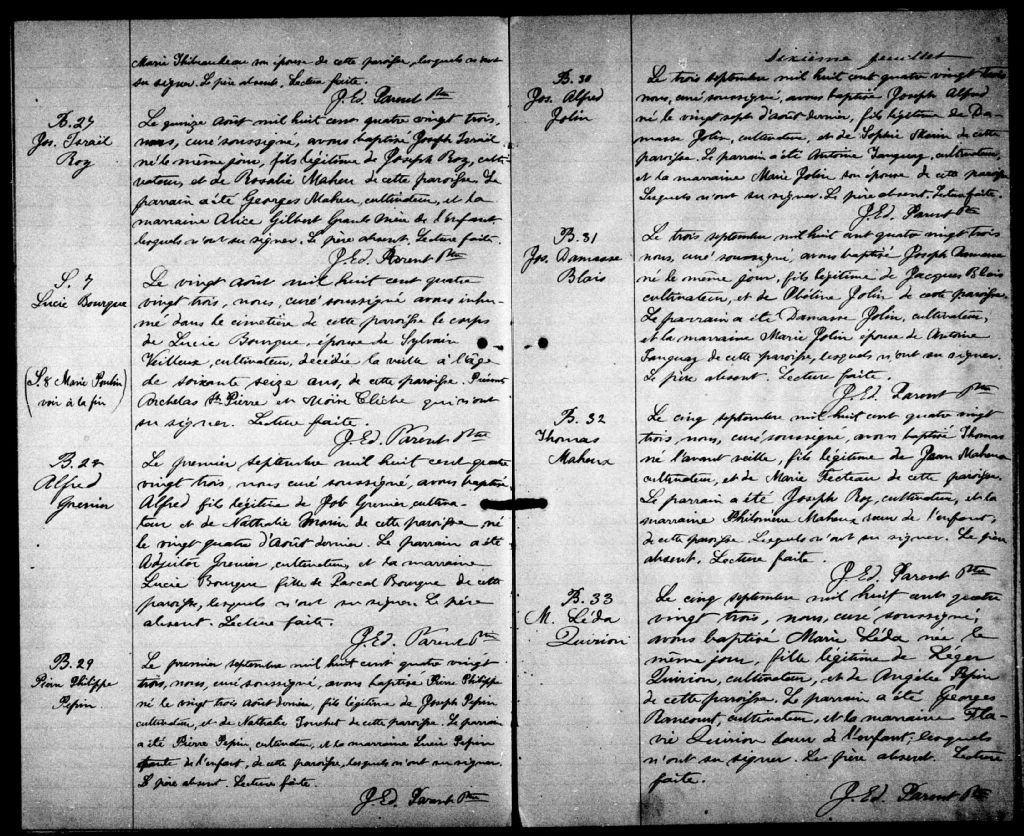 Marie Thibaudeau son épouse de cette paroisse, lesquels n'ont
su signer. Le père absent. Lecture faite.
J. Ed. Parent Ptre
B. 27
Jos. Israïl
Roy
Le quinze Août mil huit cent quatre vingt trois,
nous, curé soussigné, avons baptisé Joseph Israïl
né le même jour, fils légitime de Joseph Roy, culti-
vateur, et de Rosalie Maheu de cette paroisse. Le
parrain a été Georges Maheu, cultivateur, et la
marraine Alice Gilbert Grand Mère de l'enfant
lesquels n'ont su signer. Le père absent. Lecture faite.
J. Ed. Parent Ptre
S. 7
Lucie Bourque
Le vingt août mil huit cent quatre
vingt trois, nous, curé soussigné avons inhu-
mé dans le cimetière de cette paroisse le corps
de Lucie Bourque, épouse de Sylvain
Veilleux, cultivateur, décédée la veille à l'âge
de soixante seize ans, de cette paroisse. Présents
Archelas St Pierre et Moïse Cliche qui n'ont
su signer. Lecture faite.
J. Ed. Parent Ptre
(S. 8 Marie Poulin
voir à la fin)
B. 28
Alfred
Grenier
Le premier septembre mil huit cent quatre
vingt trois, nous curé soussigné, avons baptisé
Alfred fils légitime de Job Grenier cultiva-
teur et de Nathalie Morin de cette paroisse né
le vingt quatre d'Août dernier. Le parrain a été
Adjutor Grenier, cultivateur, et la marraine
Lucie Bourque fille de Pascal Bourque de cette
paroisse, lesquels n'ont su signer. Le père
absent. Lecture faite.
J. Ed. Parent Ptre
B. 29
Pierre Philippe
Pepin
Le premier septembre mil huit cent quatre vingt
trois, nous, curé soussigné, avons baptisé Pierre Philippe
né le vingt trois Août dernier, fils légitime de Joseph Pepin
cultivateur, et de Nathalie de cette paroisse. Le parrain
a été Pierre Pepin, cultivateur, et la marraine Lucie Pepin
tante de l'enfant, de cette paroisse, lesquels n'ont su signer.
Le père absent. Lecture faite.
J. Ed. Parent Ptre
Sixième feuillet
B. 30
Jos. Alfred
Jolin
Le trois septembre mil huit cent quatre vingt trois
nous, curé soussigné, avons baptisé Joseph Alfred
né le vingt sept d'Août dernier, fils légitime de Da-
masse Jolin, cultivateur, et de Sophie Morin de cette
paroisse. Le parrain a été Antoine Tanguay, cultivateur,
et la marraine Marie Jolin son épouse de cette paroisse
Lesquels n'ont su signer. Le père absent. Lecture faite.
J. Ed. Parent Ptre
B. 31
Jos. Damasse
Blais
Le trois septembre mil huit cent quatre vingt trois
nous, curé soussigné, avons baptisé Joseph Damasse
né le même jour, fils légitime de Jacques Blais
cultivateur, et de Obéline Jolin de cette paroisse.
Le parrain a été Damasse Jolin, cultivateur,
et la marraine Marie Jolin épouse de Antoine
Tanguay de cette paroisse, lesquels n'ont su signer.
Le père absent. Lecture faite.
J. Ed. Parent Ptre
B. 32
Thomas
Maheux
Le cinq septembre mil huit cent quatre vingt
trois, nous, curé soussigné, avons baptisé Thomas
né l'avant veille, fils légitime de Jean Maheux
cultivateur, et de Marie Fecteau de cette paroisse.
Le parrain a été Joseph Roy, cultivateur, et la
marraine Philomène Maheux sœur de l'enfant,
de cette paroisse. Lesquels n'ont su signer. Le père
absent. Lecture faite.
J. Ed. Parent Ptre
B. 33
M. Léda
Quirion
Le cinq septembre mil huit cent quatre
vingt trois, nous, curé soussigné,
avons baptisé Marie Léda née le
même jour, fille légitime de Léger
Quirion, cultivateur, et de Angélie Pepin
de cette paroisse. Le parrain a été Georges
Rancourt, cultivateur, et la marraine Fla-
vie Quirion sœur de l'enfant, lesquels
n'ont su signer. Le père absent. Lecture
faite.
J. Ed. Parent Ptre